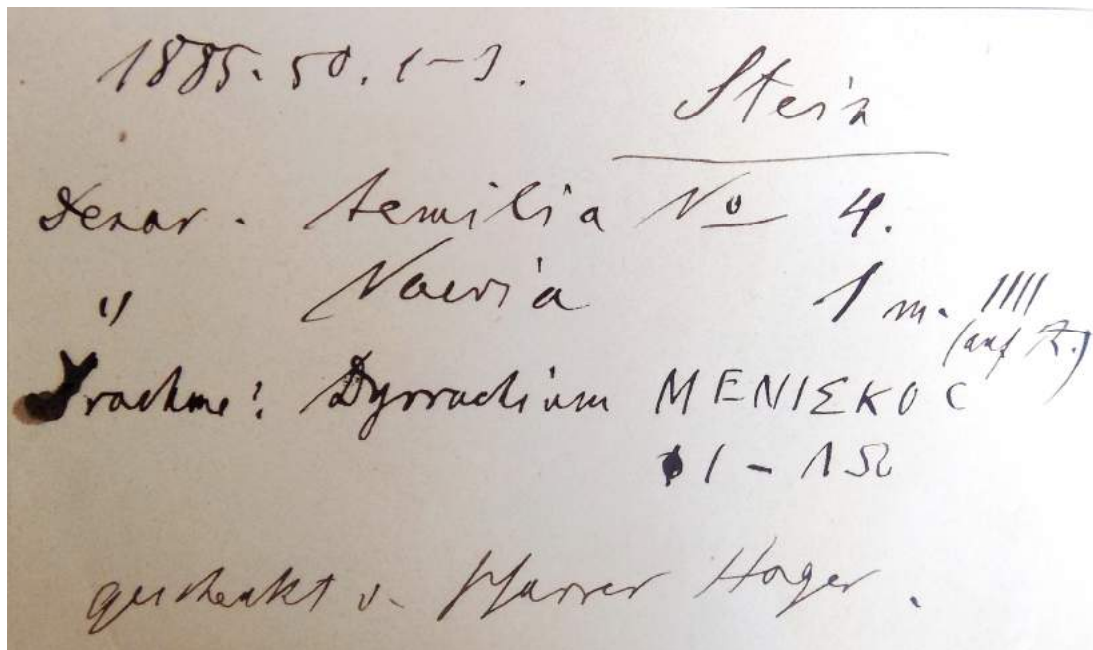 1885. 50. 1-3.
Stein
Denar. Aemilia No 4.
" Naevia 1 m. IIII
(auf R.)
Drachme: Dyrrachium MENIΣKOC
geschenkt v. Pfarrer Hoger.